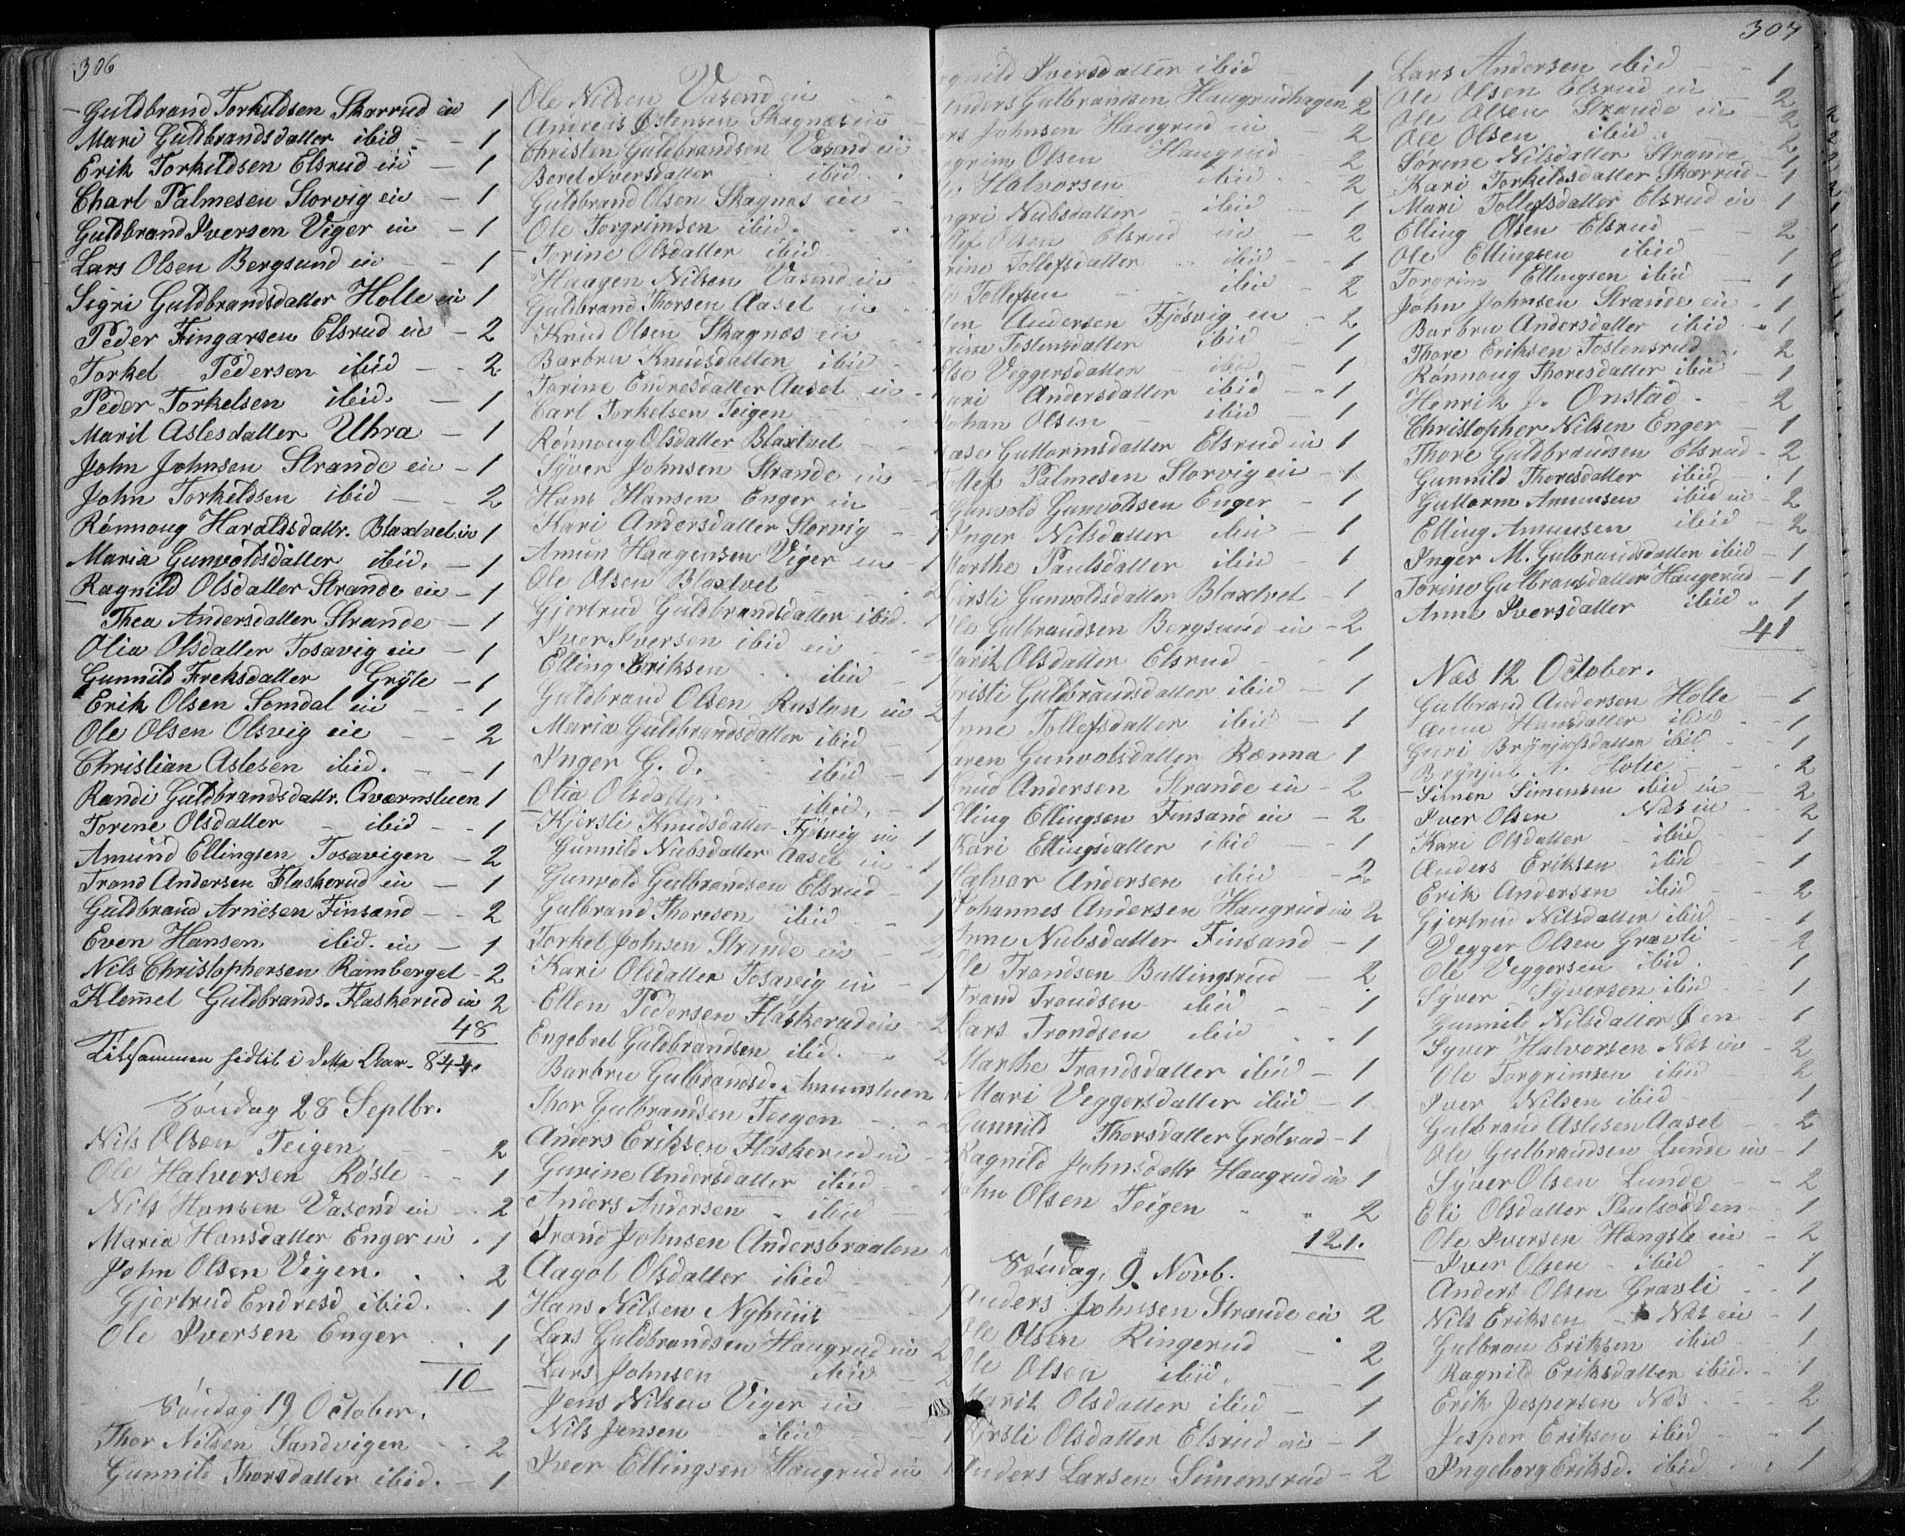 306
Guldbrand Torkildsen Skarrud ei 1
Mari Guldbrandsdatter ibid. - 1
Erik Torkildsen Elsrud ei - 1
Charl Palmesen Storvig ei - 1
Guldbrand Iversen Viger ei - 1
Lars Olsen Bergsund ei - 1
Sigri Guldbrandsdatter Holte ei 1
Peder Fingarsen Elsrud ei - 2
Torkel Pedersen ibid - 2
Peder Torkelsen ibid. - 1
Marit Aslesdatter Uhra - 1
John Johnsen Strande ei - 1
John Torkildsen ibid - 2
Rønnoug Haraldsdattr. Blaxtvet ei 1
Maria Gunvoldsdatter ibid. - 1
Ragnild Olsdatter Strande ei - 1
Thea Andersdatter Strande - 1
Olia Olsdatter Tosavig ei - 1
Gunnild Freksdatter Gryte - 1
Erik Olsen Somdal ei - 1
Ole Olsen Olsvig ei - 2
Christian Aslesen ibid. - 1
Randi Guldbrandsdattr. Qværnstuen 1
Torine Olsdatter - ibid - 1
Amund Ellingsen Tosavigen - 2
Trond Andersen Flaskerud ei - 1
Guldbrand Arnesen Finsand - 2
Even Hansen ibid. ei - 1
Nils Christophersen Ramberget - 2
Klemmet Guldbrands. Flaskerud ei 2
48
Tilsammen hidtil i dette Aar - 844.
Søndag 28 Septbr.
Nils Olsen Teigen - 2
Ole Halvorsen Røste - 1
Nils Hansen Vasend ei - 2
Maria Hansdatter Enger ei . 1
John Olsen Vigen. . . 2
Gjertrud Endresd ibid. . 1
Ole Iversen Enger . 1
10
Søndag 19 October.
Thor Nilsen Sandvigen - 2
Gunnild Thorsdatter ibid. - 1
Ole Nilsen Vasend ei
Andreas Østensen Skagnæs ei
Christen Guldbrandsen Vasend ei
Beret Iversdatter ibid.
Guldbrand Olsen Skagnæs ei
Ole Torgrimsen ibid.
Torine Olsdatter ibid
Haagen Nilsen Vasend ei
Guldbrand Thorsen Aaset ei
Knud Olsen Skagnæs ei
Barbru Knudsdatter ibid
Torine Endresdatter Aaset ei
Carl Torkelsen Teigen
Rønnoug Olsdatter Blaxtvet
Syver Johnsen Strande ei
Hans Hansen Enger ei
Kari Andersdatter Storvig
Amun Haagensen Viger ei - 1
Ole Olsen Blaxtvet - 2
Gjertrud Guldbrandsdatter ibid. 1
Iver Iversen ibid ei
Elling Eriksen ibid
Guldbrand Olsen Rustan ei 2
Maria Guldbrandsdatter ibid
Inger G. d. ibid - 1
Olia Olsdatter - ibid. - 1
Kjersti Knudsdatter Fjøsvig ei 1
Gunnild Nubsdatter Aaset ei - 1
Gunvold Gulbrandsen Elsrud - 1
Gulbrand Thoresen ibid - 1
Torkel Johnsen Strande ei
Kari Olsdatter Tosavig ei - 1
Ellen Pedersen Flaskerud ei 2
Engebret Guldbrandsen ibid. 2
Barbru Gulbrandsd. Amunstuen
Thor Gulbrandsen Teigen
Anders Eriksen Flaskerud ei
Gurine Andersdatter ibid
Anders Andersen ibid
Trond Johnsen Andersbraaten
Aagot Olsdatter ibid
Hans Nilsen Nyhuus
Lars Guldbrandsen Haugrud ei 2
Lars Johnsen ibid
Jens Nilsen Viger ei
Nils Jensen ibid
Iver Ellingsen Haugrud ei
307
Iversdatter ibid - 1
Anders Gulbrandsen Haugrudhagen 2
Johnsen Haugrud ei 2
Olsen Haugrud 2
Halvorsen ibid 2
Nubsdatter - ibid - 1
Olsen Elsrud ei - 2
Tollefsdatter ibid - 1
Tollefsen ibid - 2
Andersen Fjøsvig ei - 2
Tostensdatter ibid - 1
Veggersdatter ibid - 1
Andersdatter ibid - 1
Johan Olsen ibid - 1
Guttormsdatter Elsrud ei 1
Palmesen Storvig ei - 1
Gunvold Gunvoldsen Enger - 1
Inger Nilsdatter ibid - 1
Marthe Paulsdatter ibid - 1
Kjersti Gunvoldsdatter Blaxtvet - 1
Ole Gulbrandsen Bergsund ei - 2
Marit Olsdatter Elsrud - 1
Kristi Guldbrandsdatter ibid - 1
Anne Tollefsdatter ibid - 1
Karen Gunvoldsdatter Rænna 1
Knud Andersen Strande ei - 2
Elling Ellingsen Finsand ei - 2
Kari Ellingsdatter ibid - 1
Halvor Andersen ibid - 2
Johannes Andersen Haugrud ei 2
Anne Nubsdatter Finsand - 1
Ole Trondsen Buttingsrud - 2
Trond Trondsen ibid - 1
Lars Trondsen ibid . . 1
Marthe Trondsdatter ibid - 1
Mari Veggersdatter ibid - 1
Gunnild Thorsdatter Grøtrud - 1
Ragnild Johnsdattr Haugrud ei 1
John Olsen Teigen " " 2
121.
Søndag, 9. Novb.
Anders Johnsen Strande ei 2
Ole Olsen Ringerud - 2
Ole Olsen ibid. - 1
Marit Olsdatter ibid - 1
Kjersti Olsdatter Elsrud ei - 1
Anders Larsen Simensrud - 2
Lars Andersen ibid - 1
Ole Olsen Elsrud ei - 2
Ole Olsen Strande ei - 2
Ole Olsen ibid. 2
Torine Nilsdatter Strande - 1
Kari Torkildsdatter Skarrud - 1
Mari Tollefsdatter Elsrud ei - 1
Elling Olsen Elsrud - 2
Ole Ellingsen ibid 1
Torgrim Ellingsen ibid - 1
John Johnsen Strande ei . 1
Barbru Andersdatter ibid - 1
Thore Eriksen Tostensrud . 2
Rønnoug Thoresdatter ibid - 1
Henrik J. Onstad . - 2
Christopher Nilsen Enger - 1
Thore Guldbrandsen Elsrud - 2
Gunnild Thoresdatter ibid . 1
Guttorm Amunsen ibid ei - 2
Elling Amunsen ibid - 2
Inger M. Gulbrandsdatter ibid - 1
Torine Gulbrandsdatter Haugerud - 1
Anne Iversdatter ibid " 1
41
Næs 12 October.
Gulbrand Andersen Holte - 1
Anne Hansdatter ibid - 1
Guri Brynjulfsdatter ibid - 1
Brynjul A. Holte - 2
Simen Simensen ibid ei - 2
Iver Olsen Næs ei - 2
Kari Olsdatter - ibid - 1
Anders Eriksen ibid - 1
Erik Andersen ibid - 2
Gjertrud Nilsdatter ibid - 1
Vegger Olsen Gravli - 2
Ole Veggersen ibid. 1
Syver Syversen ibid - 1
Gunnild Nilsdatter Øen - 1
Syver Halvorsen Næs ei - 2
Ole Torgrimsen ibid - 2
Iver Nilsen ibid 1
Gulbrand Aslesen Aaset - 2
Ole Gulbrandsen Lunde ei - 1
Syver Olsen Lunde - 2
Eli Olsdatter Paulsødden - 1
Ole Iversen Hængsle ei - 2
Iver Olsen - ibid - 1
Anders Olsen Gravli - 1
Nils Eriksen Næs ei - 1
Gulbran Eriksen ibid - 1
Ragnild Eriksdatter ibid. - 1
Erik Jespersen Næs - 2
Jesper Eriksen ibid - 1
Ingeborg Eriksd. ibid - 1